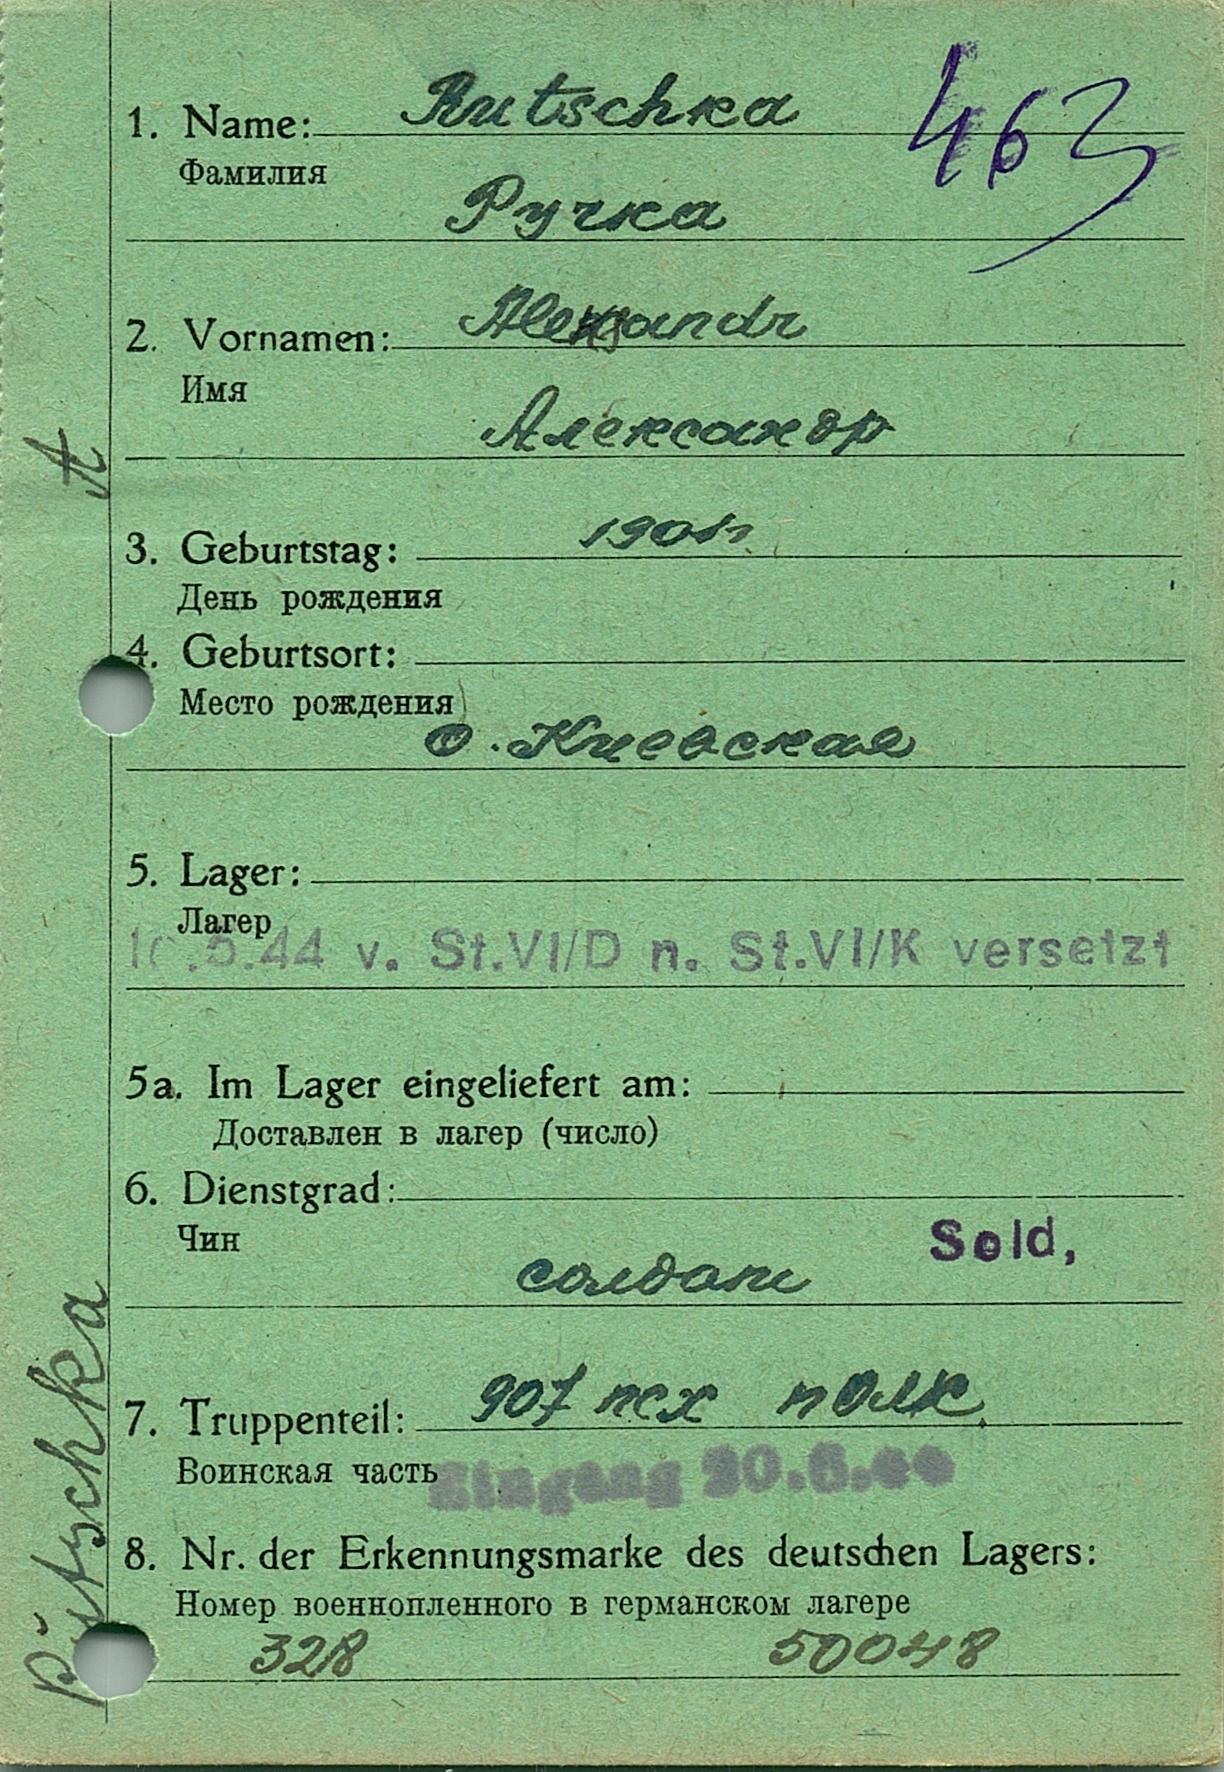 463
1. Name: Rutschka
Фамилия
Ручка
2. Vornamen: Alexsandr
Имя
Александр
3. Geburtstag:
День рождения
4. Geburtsort:
Место рождения
о. Киевская
5. Lager:
Лагер
.5.44 v. St.VI/D n. St.VI/K versetzt
5a. Im Lager eingeliefert am:
Доставлен в лагер (число)
6. Dienstgrad:
Чин
Sold,
солдат
7. Truppenteil: 907 пех полк
Воинская часть
Eingang
8. Nr. der Erkennungsmarke des deutschen Lagers:
Номер военнопленного в германском лагере
328 50048
A